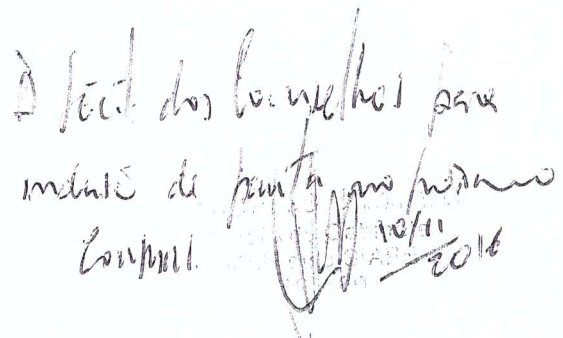 À Secr. dos Conselhos para
inclusão de pauta no próximo
Conpres.
10/11
2016